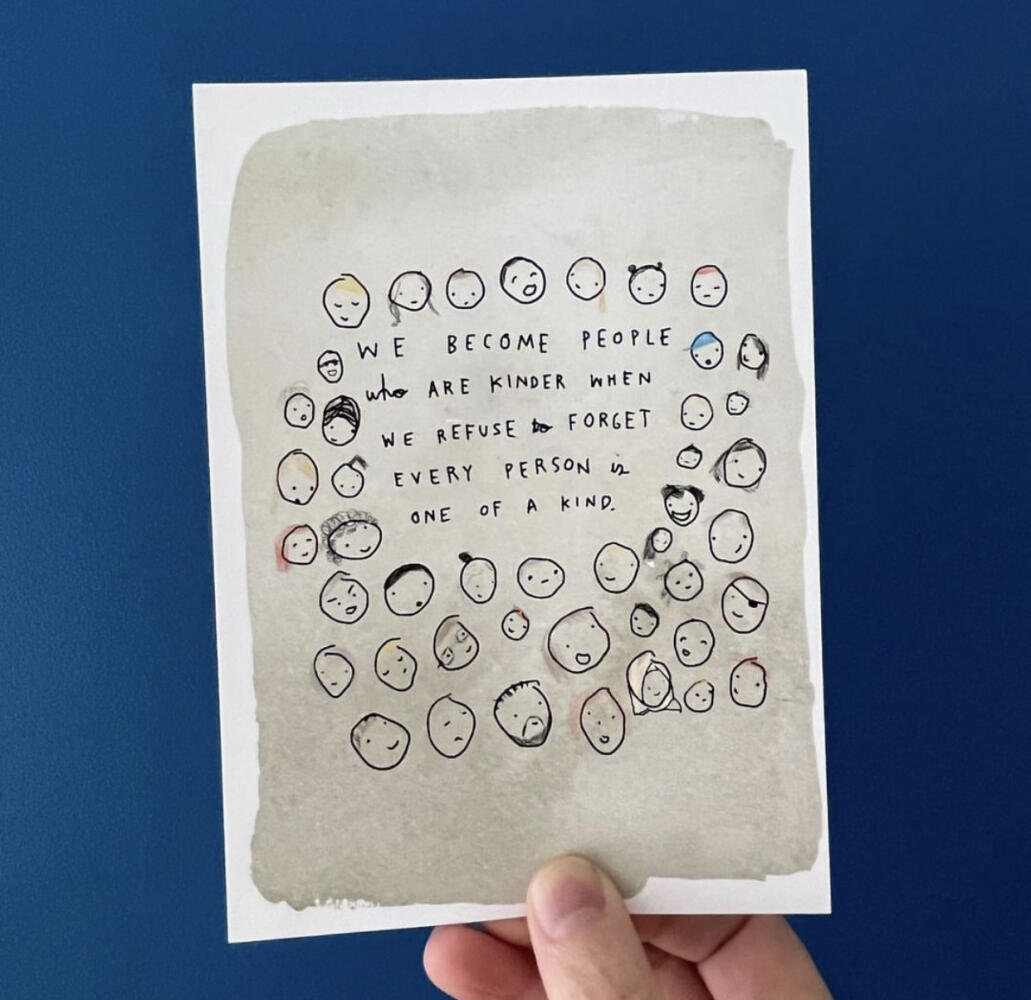 WE BECOME PEOPLE
who ARE KINDER WHEN
WE REFUSE to FORGET
EVERY PERSON is
ONE OF A KIND.